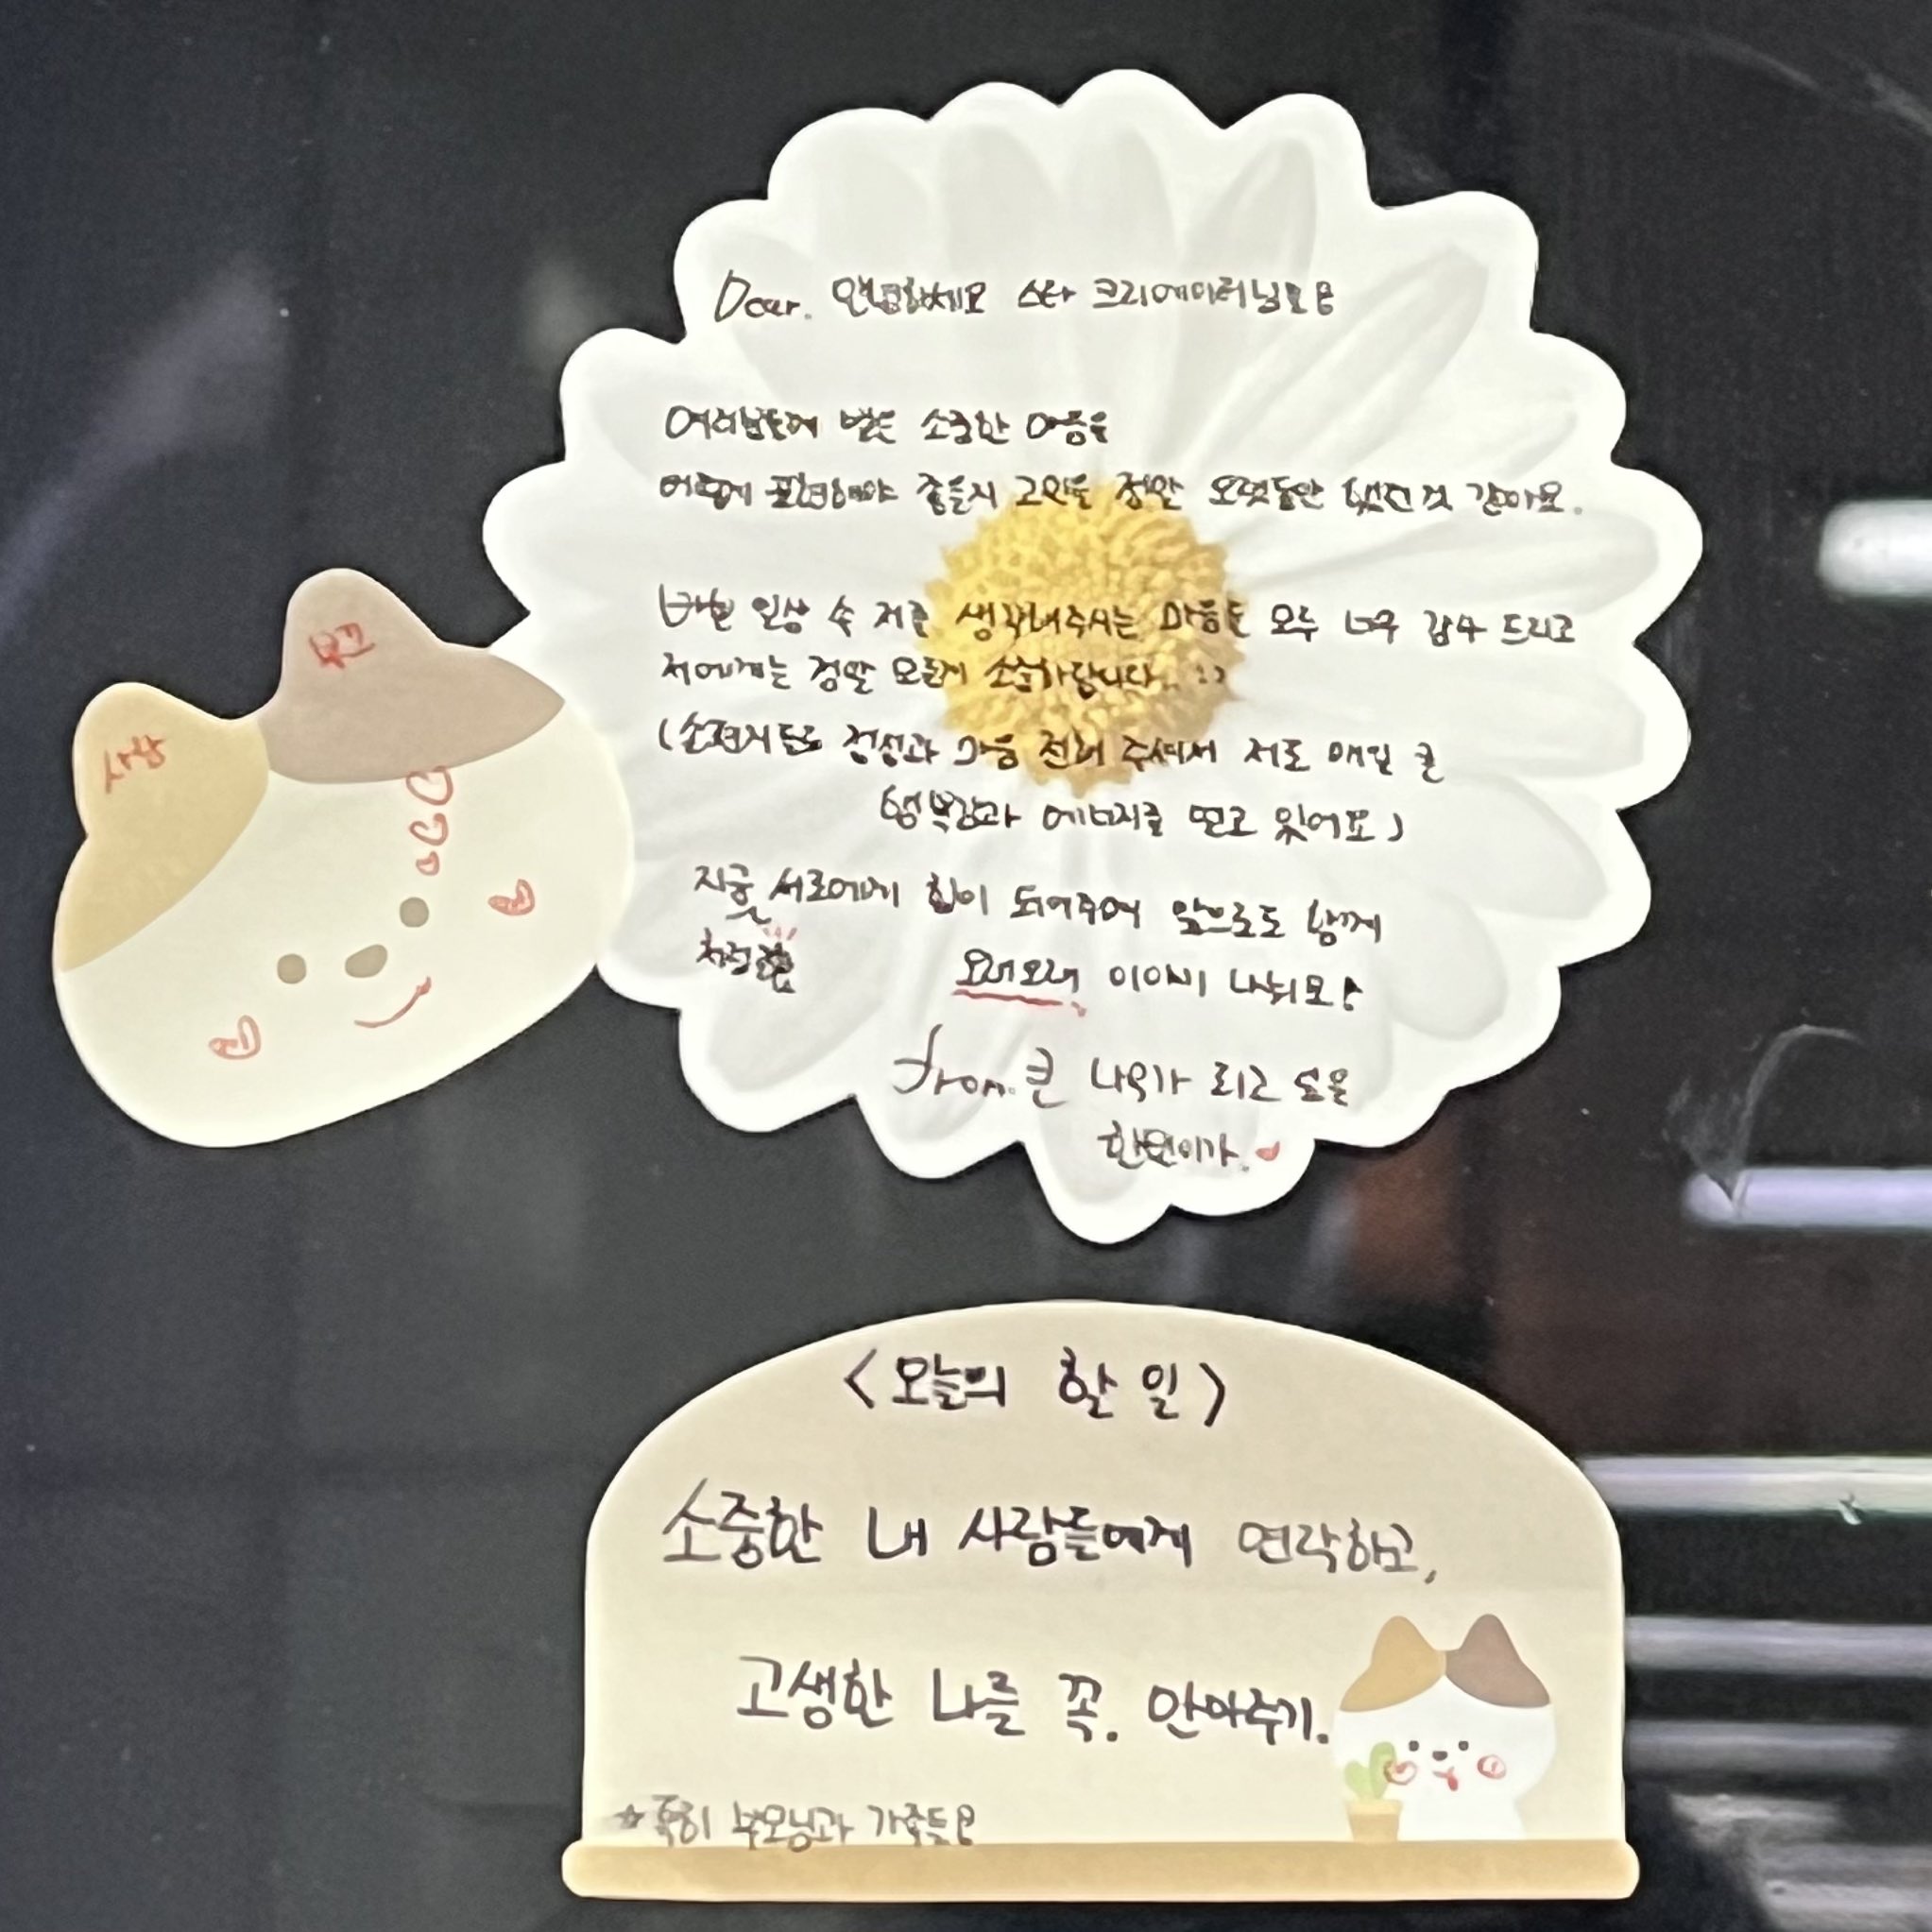 Dear. 안녕하세요 스타 크리에이터님들
여러분들께 받은 소중한 마음을
어떻게 표현해야 좋을지 고민을 정말 오랫동안 했던 것 같아요.
바쁜 일상 속 저를 생각해주시는 마음들 모두 너무 감사 드리고
저에게는 정말 모든게 소중하답니다.. :)
(손편지들로 정성과 마음 전해 주셔서 저도 매일 큰
행복감과 에너지를 얻고 있어요)
지금 서로에게 힘이 되어주며 앞으로도 함께
처럼
오래오래 이야기 나눠요!
from. 큰 나무가 되고 싶은
한원이가.
사랑
<오늘의 할 일>
소중한 내 사람들에게 연락하고,
고생한 나를 꼭. 안아주기.
☆특히 부모님과 가족들!